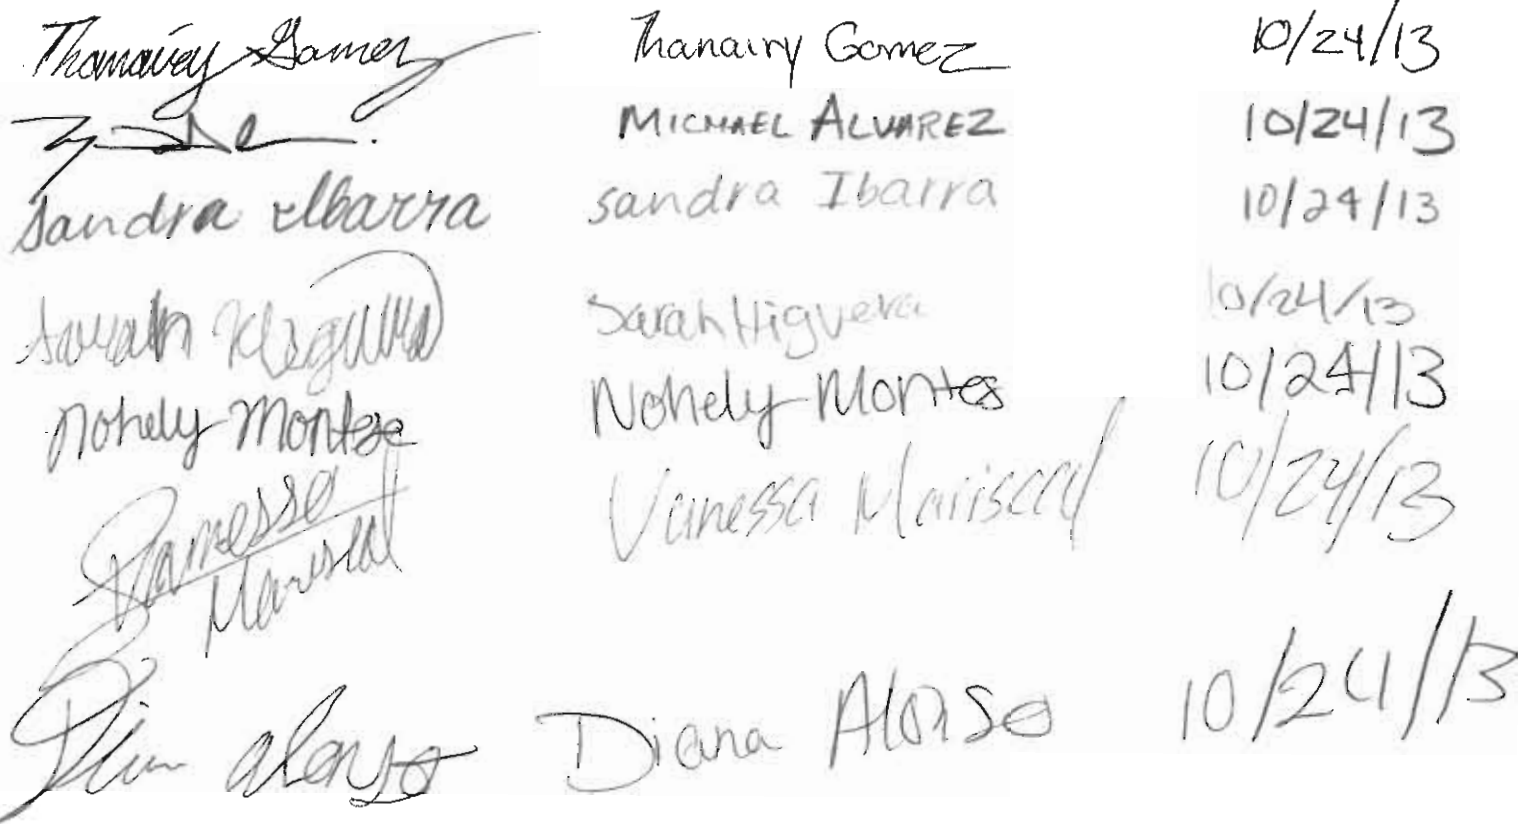 Thanairy Gomez Thanairy Gomez 10/24/13
MICHAEL ALVAREZ 10/24/13
Sandra Ibarra sandra Ibarra 10/24/13
Sarah Higuera Sarah Higuera 10/24/13
Nohely Montes Nohely Montes 10/24/13
Vanessa Mariscal Vanessa Mariscal 10/24/13
Diana Alonso Diana Alonso 10/24/13